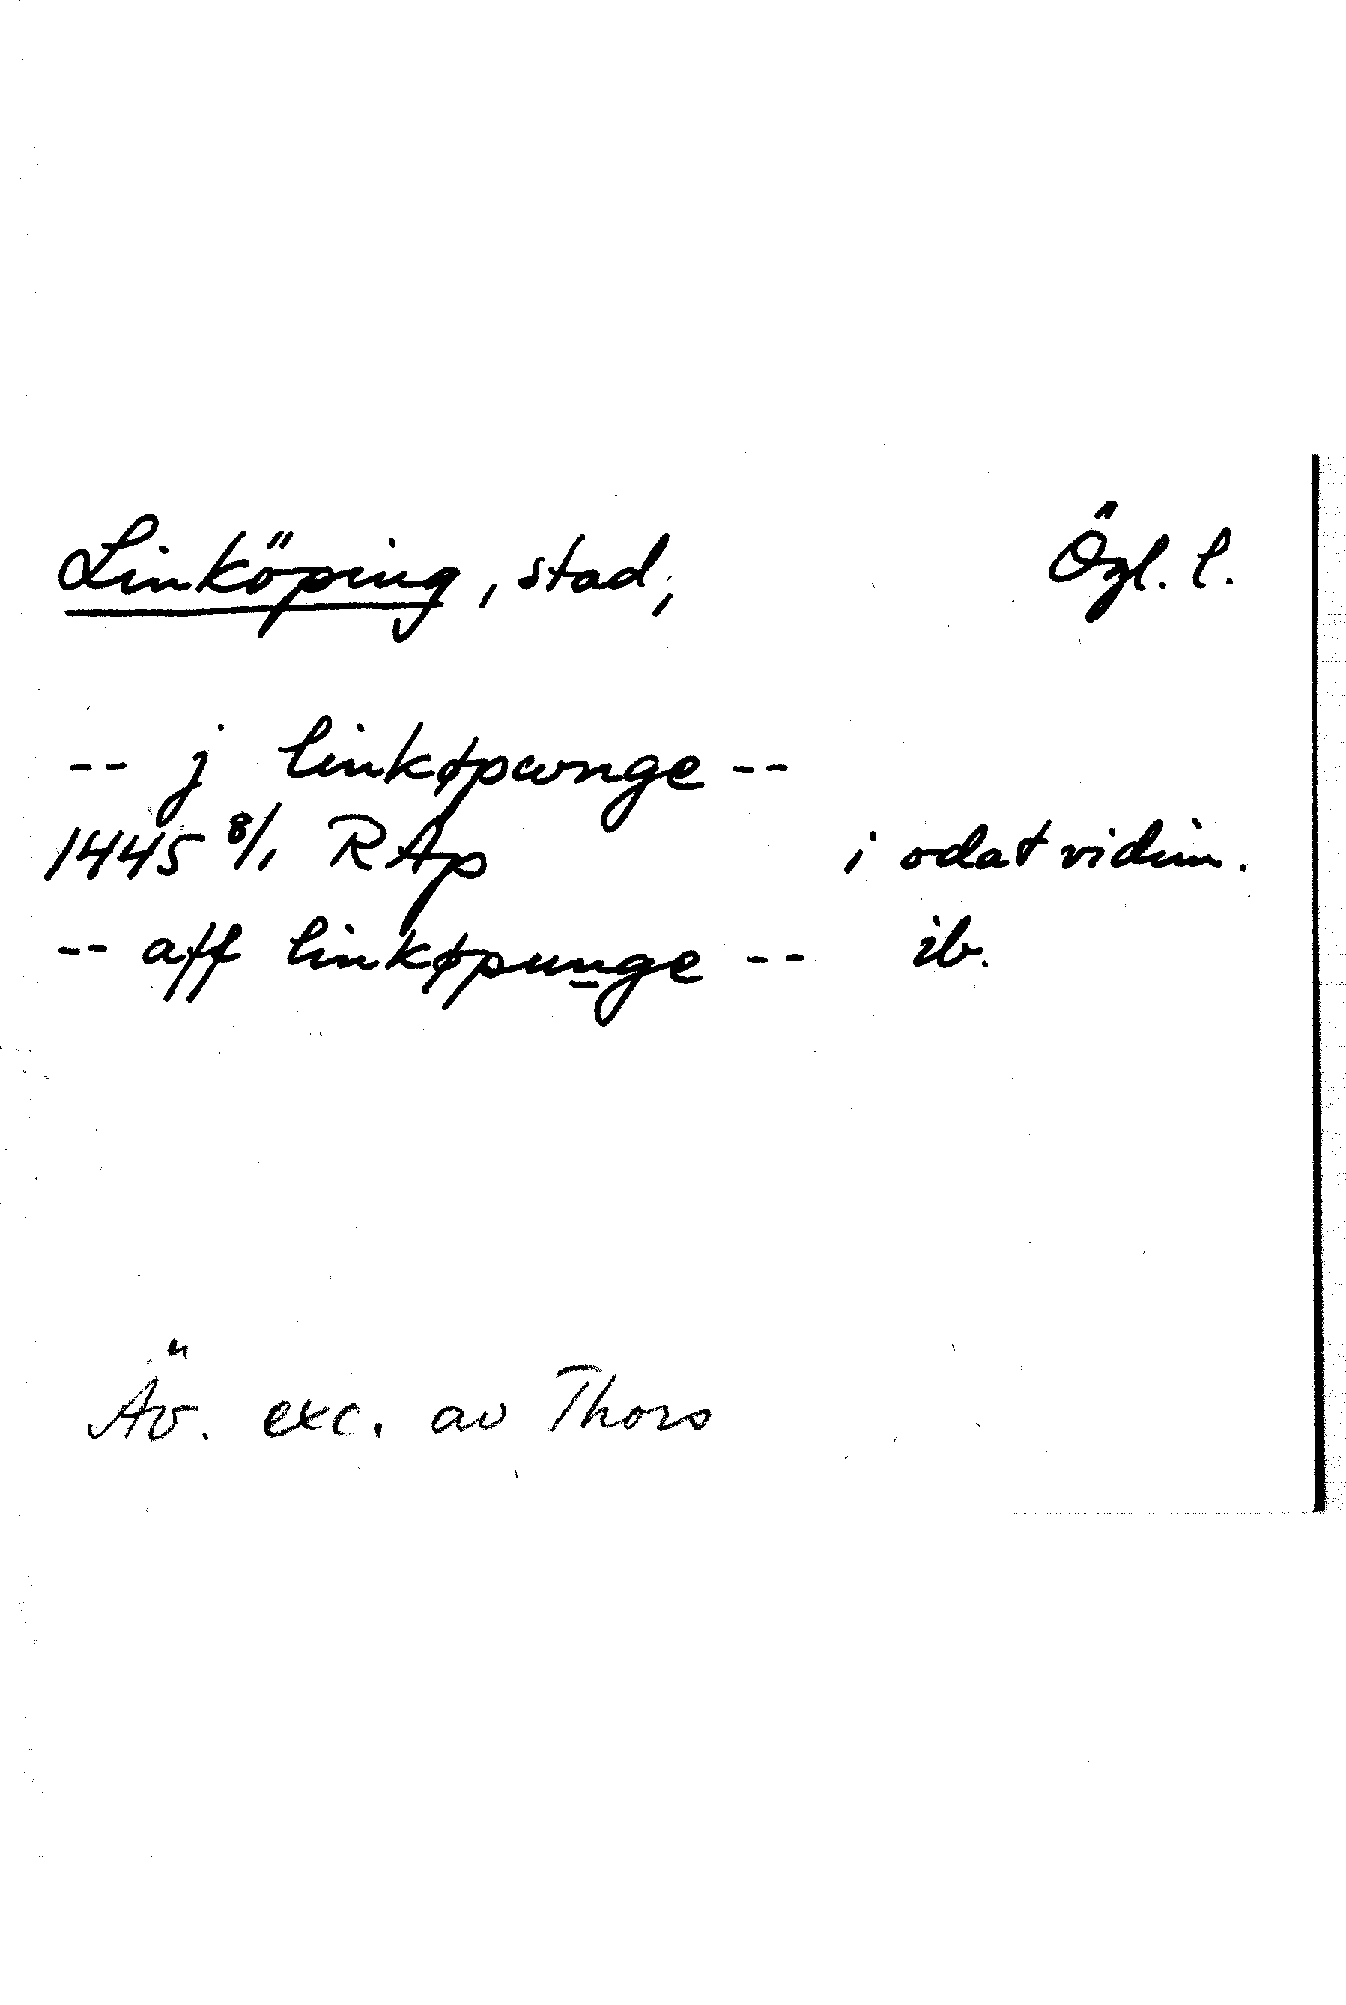 Linköping, stad, Ögl. l.
-- j linkøpwnge --
1445 8/1 RAp i odat vidim.
-- aff linkøpunge -- ib.
Äv. exc. av Thors